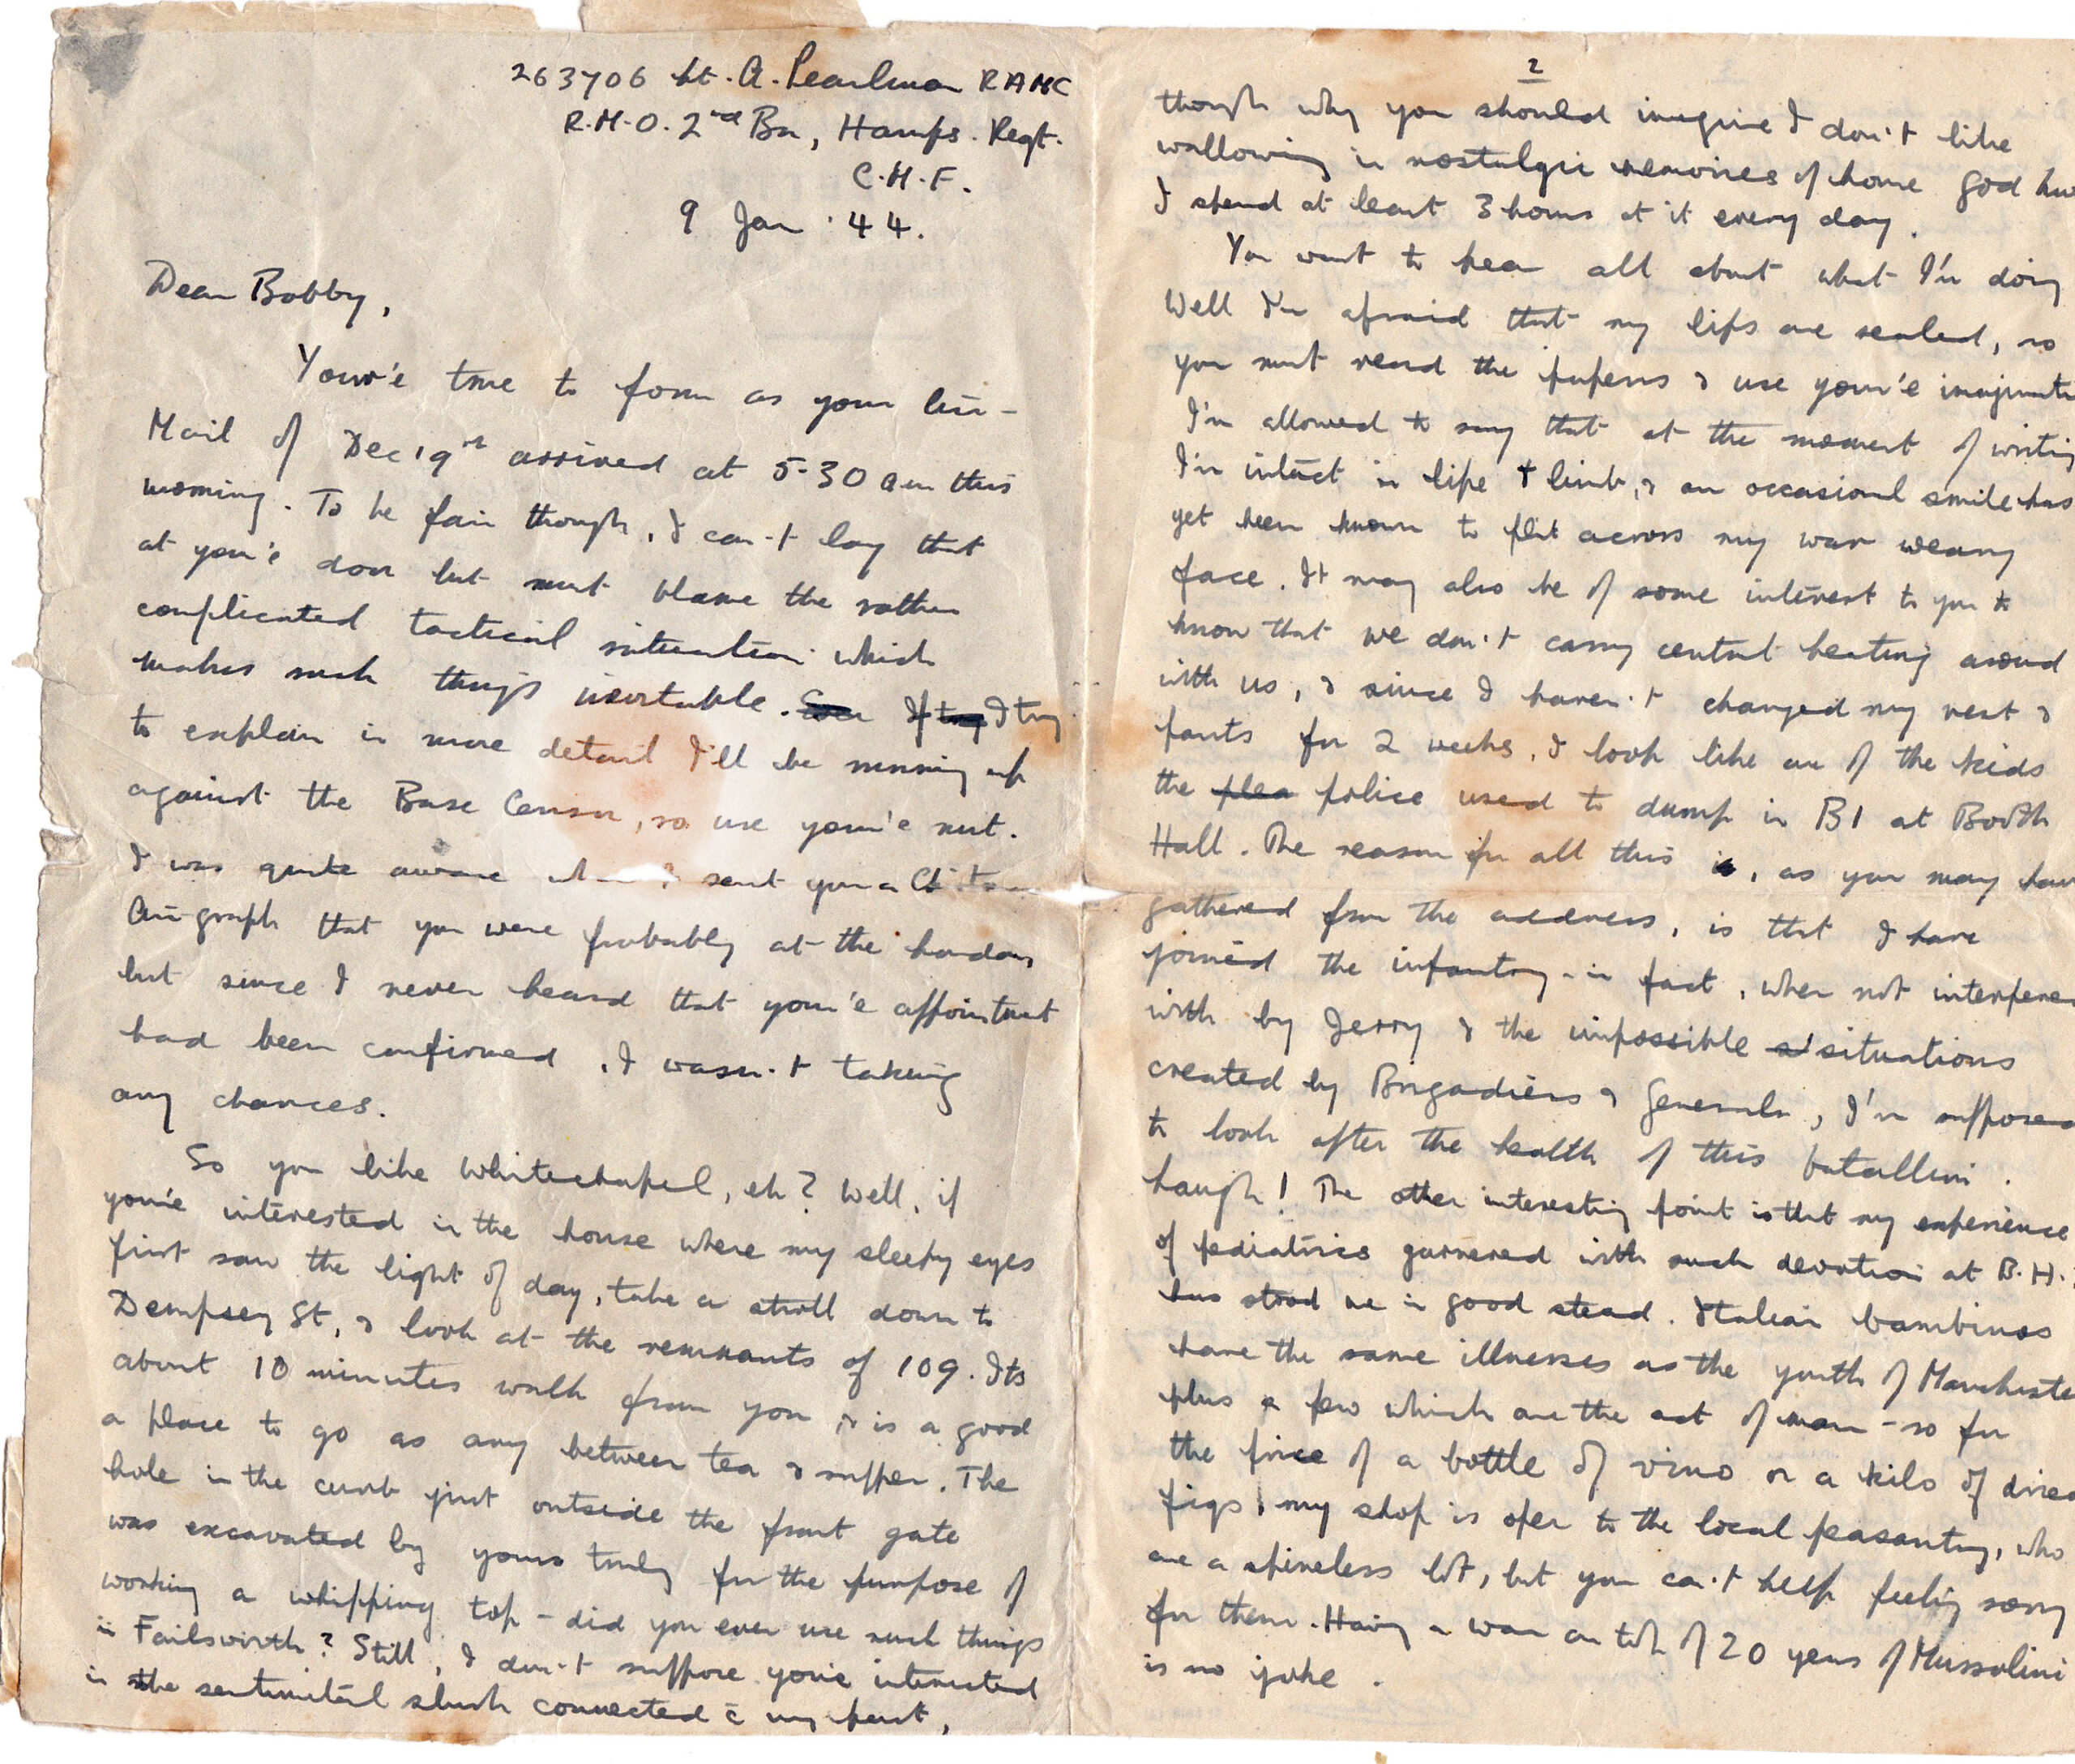 263706 Lt. A. Pearlman RAMC
R.M.O. 2nd Bn, Hamps. Regt.
C.M.F.
9 Jan. 44.
Dear Bobby,
Your'e true to form as your Air-
Mail of Dec 19th arrived at 5-30 am this
morning. To be fair though, I can't lay that
at you'e door but must blame the rather
complicated tactical situation which
makes such things inevitable. If I try
to explain in more detail I'll be running up
against the Base Censor, so use your'e nut.
I was quite aware when I sent you a
Air-graph that you were probably at the London,
but since I never heard that your'e appointment
had been confirmed, I wasn't taking
any chances.
So you like Whitechapel, eh? Well, if
you'e interested in the house where my sleepy eyes
first saw the light of day, take a stroll down to
Dempsey St, & look at the remnants of 109. Its
about 10 minutes walk from you & is a good
a place to go as any between tea & supper. The
hole in the curb just outside the front gate
was excavated by yours truly for the purpose of
working a whipping top - did you ever use such things
in Failsworth? Still, I don't suppose you'e interested
in the sentimental slush connected c̄ my past,
2
though why you should imagine I don't like
wallowing in nostalgic memories of home God
I spend at least 3 hours at it every day.
You want to hear all about what I'm doing
Well I'm afraid that my lips are sealed, so
you must read the papers & use your'e
I'm allowed to say that at the moment of writing
I'm intact in life & limb, & an occasional smile has
yet been known to flit across my war weary
face. It may also be of some interest to you to
know that we don't carry central heating around
with us, & since I haven't changed my vest &
pants for 2 weeks, I look like one of the kids
the plea police used to dump in B1 at Booth
Hall. The reason for all this is, as you may have
gathered from the address, is that I have
joined the infantry - in fact, when not interfered
with by Jerry & the impossible situations
created by Brigadiers & Generals, I'm supposed
to look after the health of this batallion.
Laugh! The other interesting point is that my experience
of pediatrics garnered with such devotion at B.H.
has stood me in good stead. Italian bambinos
have the same illnesses as the youth of Manchester
plus a few which are the act of man - so for
the price of a bottle of vino or a kilo of dried
figs, my shop is open to the local peasantry, who
are a spineless lot, but you can't help feeling sorry
for them. Having a war on top of 20 years of Mussolini
is no joke.